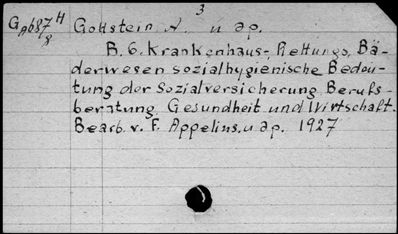 3
G 9687 H Gottstein A. и др.
8
B. 6. Krankenhaus-, Rettungs, Bä-
derwesen sozialhygienische Bedeu-
tung der Sozialversicherung Berufs-
beratung Gesundheit und Wirtschaft.
Bearb. v. F. Appelius. и др. 1927